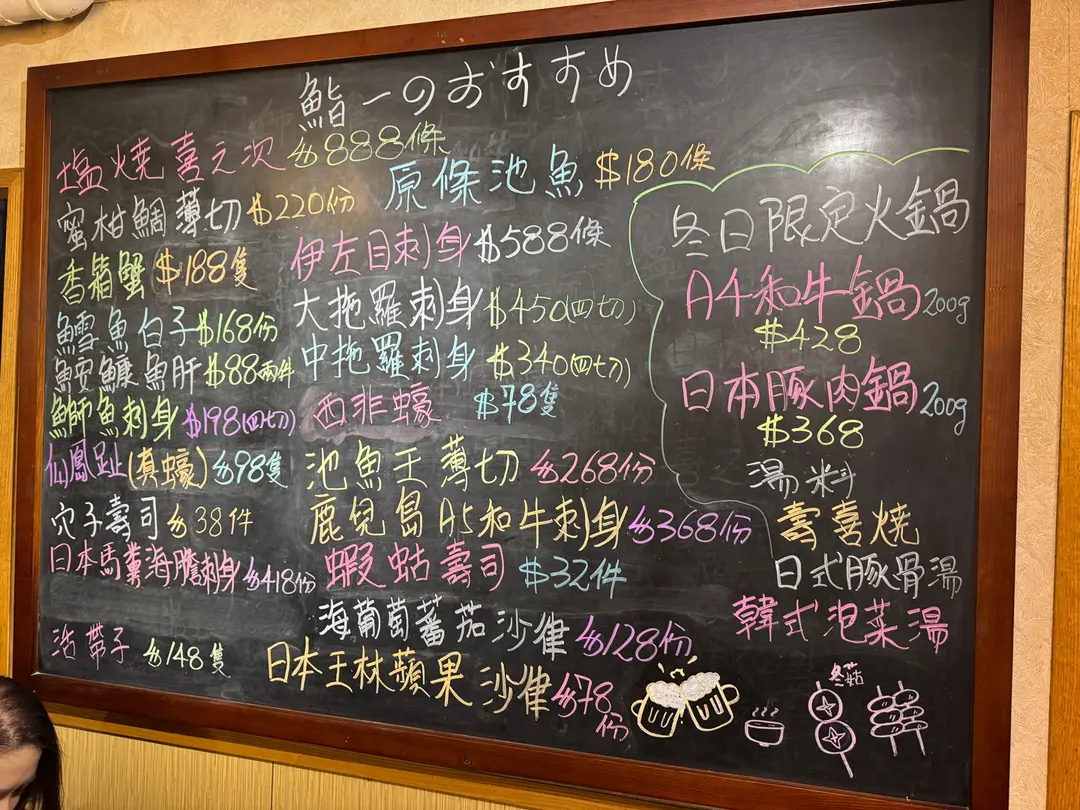 鮨一のおすすめ
塩燒喜之次 $888條
蜜柑鯛薄切 $220份
香箱蟹 $188隻
鱈魚白子 $168份
鮟鱇魚肝 $88兩件
鰤魚刺身 $198(四切)
仙鳳趾(真蠔) $98隻
穴子壽司 $38件
日本馬糞海膽刺身 $418份
活帶子 $148隻
原條池魚 $180條
伊左目刺身 $588條
大拖羅刺身 $450(四切)
中拖羅刺身 $340(四七刀)
西非蠔 $78隻
池魚王薄切 $268份
鹿兒島A5和牛刺身 $368份
蝦蛄壽司 $32件
海葡萄蕃茄沙律 $128份
日本王林蘋果沙律 $78份
冬日限定火鍋
A4和牛鍋 200g
$428
日本豚肉鍋 200g
$368
湯料
壽喜燒
日式豚骨湯
韓式泡菜湯
冬菇